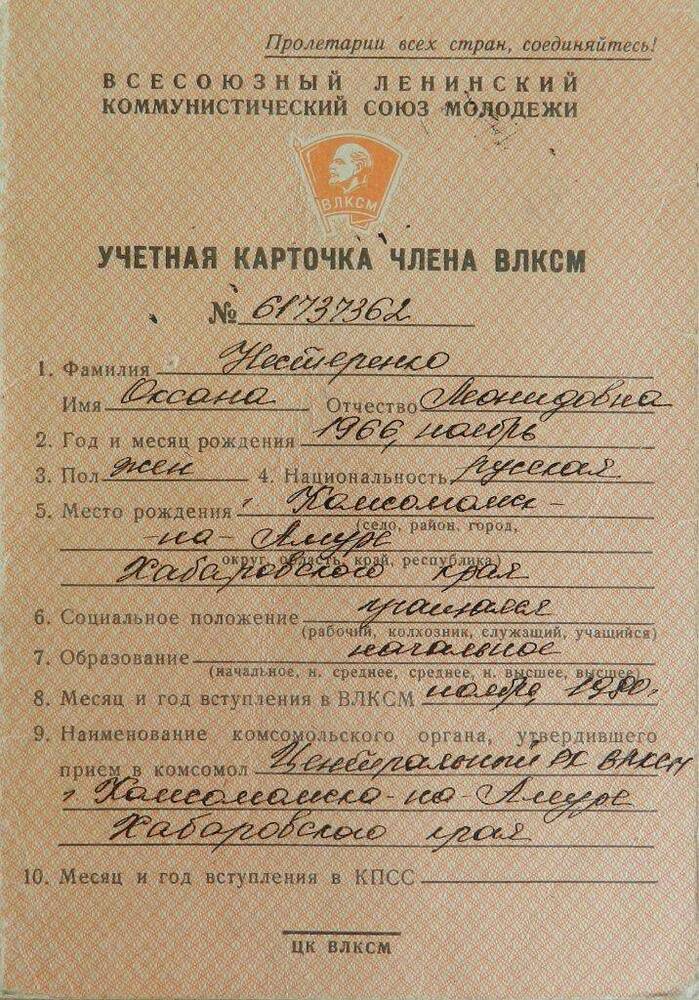 Пролетарии всех стран, соединяйтесь!
ВСЕСОЮЗНЫЙ ЛЕНИНСКИЙ
КОММУНИСТИЧЕСКИЙ СОЮЗ МОЛОДЕЖИ
ВЛКСМ
УЧЕТНАЯ КАРТОЧКА ЧЛЕНА ВЛКСМ
№ 61737362
1. Фамилия Нестеренко
Имя Оксана Отчество Леонидовна
2. Год и месяц рождения 1966, ноябрь
3. Пол жен 4. Национальность русская
5. Место рождения г. Комсомольск-
(село, район, город,
на-Амуре
округ, область, край, республика)
Хабаровского края
6. Социальное положение учащаяся
(рабочий, колхозник, служащий, учащийся)
7. Образование начальное
(начальное, н. среднее, среднее, н. высшее, высшее)
8. Месяц и год вступления в ВЛКСМ ноябрь, 1980г.
9. Наименование комсомольского органа, утвердившего
прием в комсомол Центральный РК ВЛКСМ
г. Комсомольска-на-Амуре
Хабаровского края
10. Месяц и год вступления в КПСС
ЦК ВЛКСМ